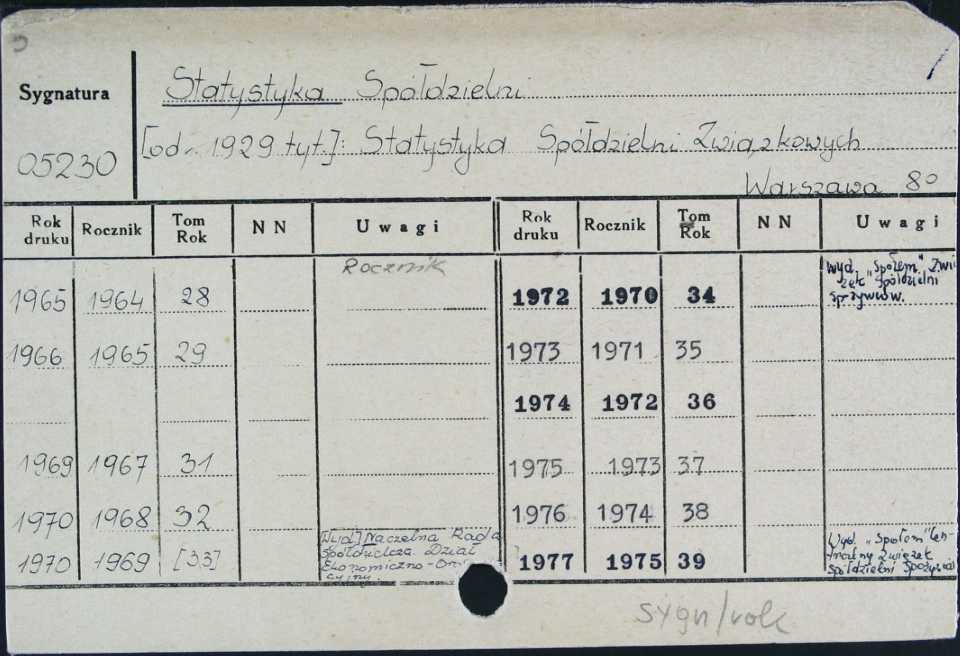 Sygnatura
05230
Statystyka Spółdzielni
[od. 1929 tyt.]: Statystyka Spółdzielni Związkowych
Warszawa 80
Rok druku Rocznik Tom Rok NN Uwagi Rok druku Rocznik Tom Rok NN Uwagi
Rocznik
1965 1964 28
1966 1965 29
1969 1967 31
1970 1968 32
1970 1969 [33] Wyd] Naczelna Rada
Spółdzielcza. Dział
Ekonomiczno-
cyjny.
1972 1970 34 Wyd. "Społem" Zwią
zek Spółdzielni
Spżywców.
1973 1971 35
1974 1972 36
1975 1973 37
1976 1974 38
1977 1975 39 Wyd. "Społem" Cen-
tralny Związek
Spółdzielni
sygn/rok